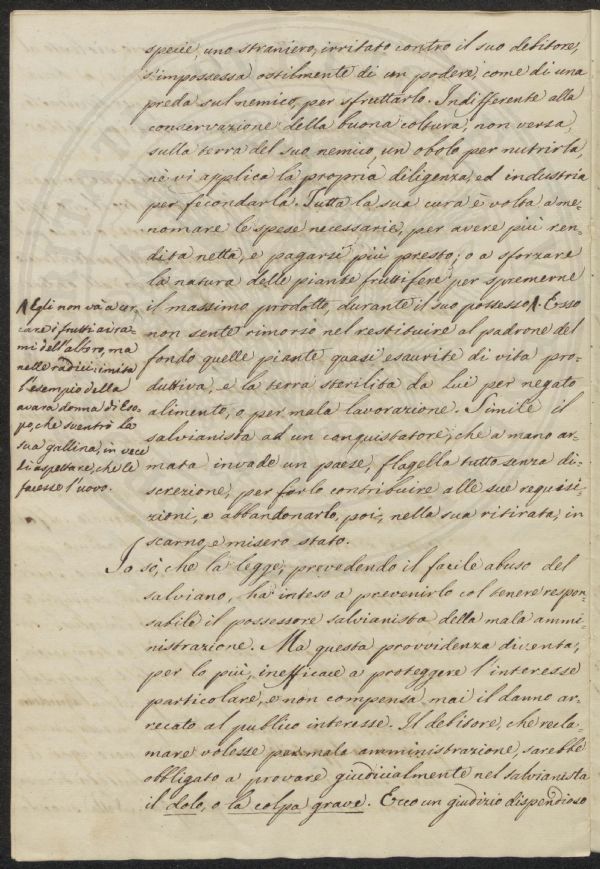 specie, uno straniero, irritato contro il suo debitore,
s'impossessa ostilmente di un podere, come di una
preda sul nemico, per sfruttarlo. Indifferente alla
conservazione della buona coltura, non versa,
sulla terra del suo nemico, un obolo per nutrirla,
nè vi applica la propria diligenza, ed industria
per fecondarla. Tutta la sua cura è volta a me-
nomare le spese necessarie, per avere più ren-
dita netta, e pagarsi più presto; o a sforzare
la natura delle piante fruttifere, per spremerne
il massimo prodotto, durante il suo possesso Λ. Esso
non sente rimorso nel restituire al padrone del
fondo quelle piante quasi esaurite di vita pro-
duttiva, e la terra sterilita da lui per negato
alimento, o per mala lavorazione. Simile il
salvianista ad un conquistatore, che a mano ar-
mata invade un paese, flagella tutto senza di-
screzione, per farlo contribuire alle sue requisi-
zioni, e abbandonarlo, poi, nella sua ritirata, in
scarno, e misero stato.
Io sò, che la legge, prevedendo il facile abuso del
salviano, ha inteso a prevenirlo col tenere respon-
sabile il possessore salvianista della mala ammi-
nistrazione. Ma questa provvidenza diventa,
per lo più, inefficace a proteggere l'interesse
particolare, e non compensa, mai il danno ar-
recato al publico interesse. Il debitore, che recla-
mare volesse per mala amministrazione, sarebbe
obbligato a provare giudicialmente nel salvianista
il dolo, o la colpa grave. Ecco un giudizio dispendioso
Λ Egli non và a cer-
care i frutti ai ra-
mi dell'albero, ma
nelle radici: imita
l'esempio della
avara donna di Eso-
po, che sventrò la
sua gallina, in vece
di aspettare, che le
facesse l'uovo.